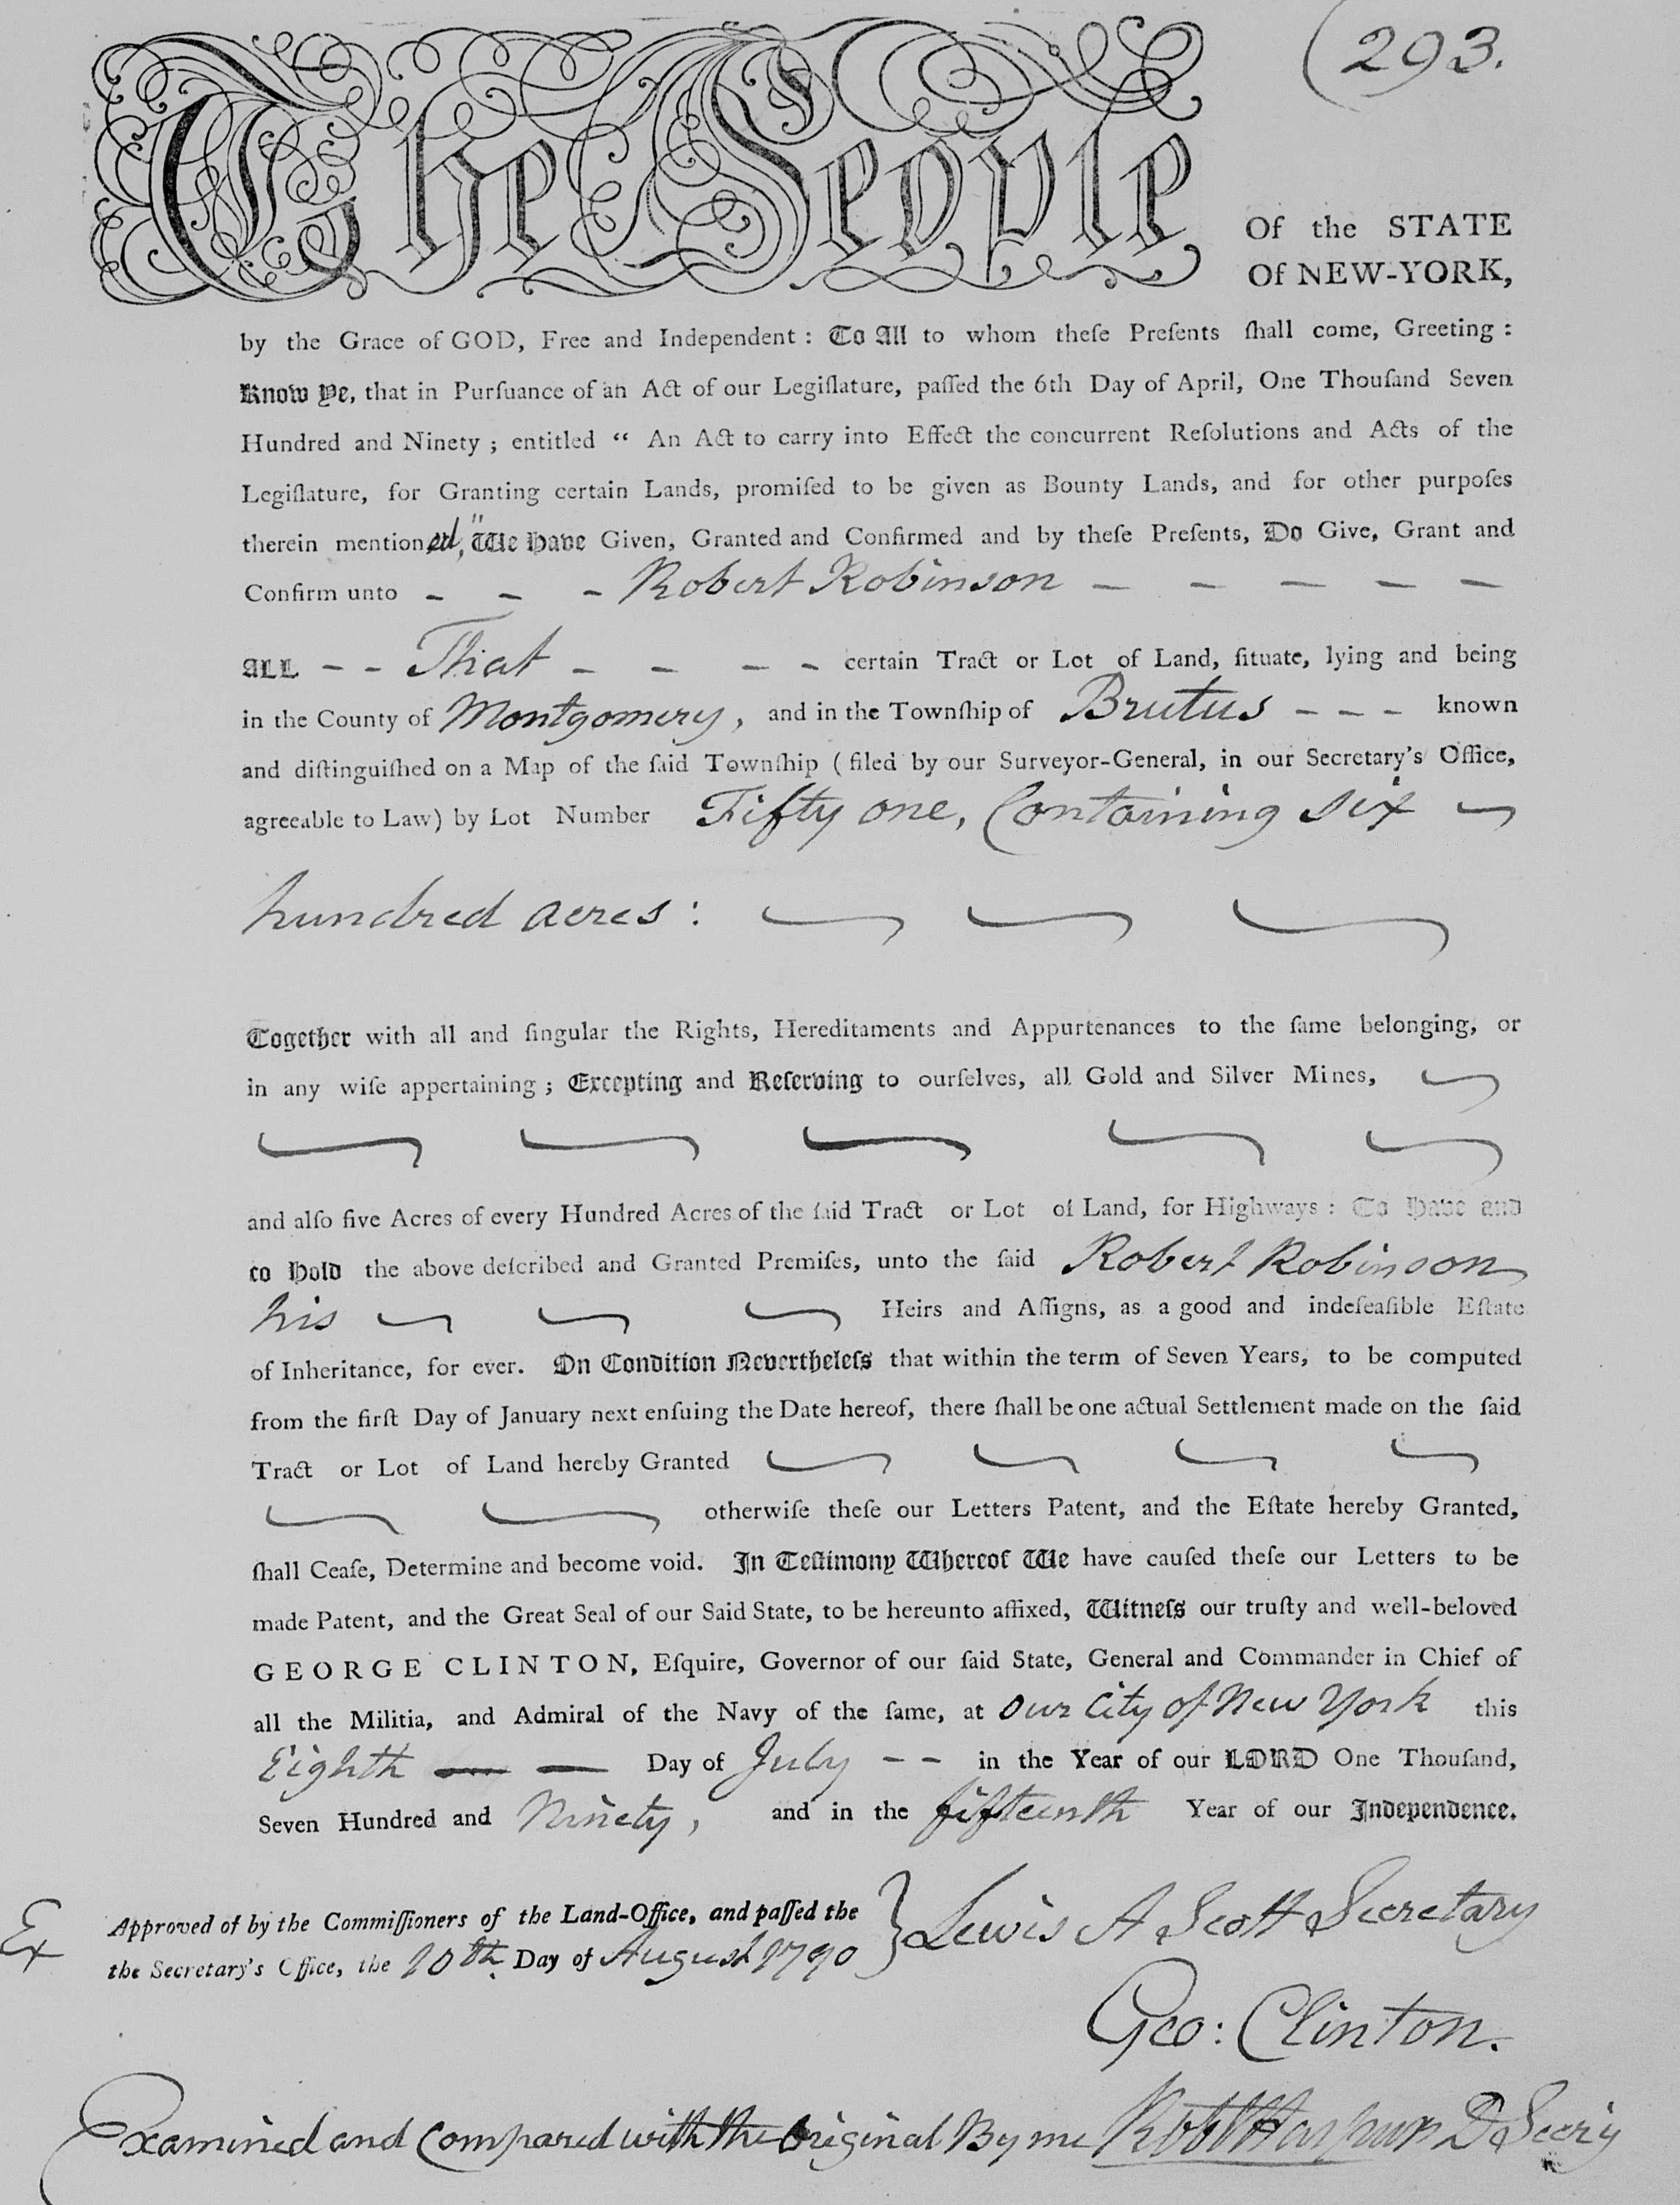 (293.
The People
Of the STATE
Of NEW-YORK,
by the Grace of GOD, Free and Independent : To All to whom theſe Preſents ſhall come, Greeting :
Know Ye, that in Purſuance of an Act of our Legiſlature, paſſed the 6th Day of April, One Thouſand Seven
Hundred and Ninety ; entitled “ An Act to carry into Effect the concurrent Reſolutions and Acts of the
Legiſlature, for Granting certain Lands, promiſed to be given as Bounty Lands, and for other purpoſes
therein mentioned," We Have Given, Granted and Confirmed and by theſe Preſents, Do Give, Grant and
Confirm unto - - - Robert Robinson - - - - -
ALL - - That - - - - certain Tract or Lot of Land, ſituate, lying and being
in the County of Montgomery, and in the Townſhip of Brutus - - - known
and diſtinguiſhed on a Map of the ſaid Townſhip ( filed by our Surveyor-General, in our Secretary's Office,
agreeable to Law) by Lot Number Fifty one, Containing six
hundred acres :
Together with all and ſingular the Rights, Hereditaments and Appurtenances to the ſame belonging, or
in any wiſe appertaining ; Excepting and Reſerving to ourſelves, all Gold and Silver Mines,
and alſo five Acres of every Hundred Acres of the ſaid Tract or Lot of Land, for Highways : To Have and
to Hold the above deſcribed and Granted Premiſes, unto the ſaid Robert Robinson
his Heirs and Aſſigns, as a good and indefeaſible Eſtate
of Inheritance, for ever. On Condition Nevertheleſs that within the term of Seven Years, to be computed
from the firſt Day of January next enſuing the Date hereof, there ſhall be one actual Settlement made on the ſaid
Tract or Lot of Land hereby Granted
otherwiſe theſe our Letters Patent, and the Eſtate hereby Granted,
ſhall Ceaſe, Determine and become void. In Teſtimony Whereof We have cauſed theſe our Letters to be
made Patent, and the Great Seal of our Said State, to be hereunto affixed, Witneſs our truſty and well-beloved
GEORGE CLINTON, Eſquire, Governor of our ſaid State, General and Commander in Chief of
all the Militia, and Admiral of the Navy of the ſame, at our City of New York this
Eighth — — Day of July - - in the Year of our LORD One Thouſand,
Seven Hundred and Ninety, and in the fifteenth Year of our Independence.
Ex
Approved of by the Commiſſioners of the Land-Office, and paſſed the
the Secretary's Office, the 10th. Day of August 1790 } Lewis A Scott Secretary
Geo: Clinton.
Examined and Compared with the Original By me Robt Harpur D Secry